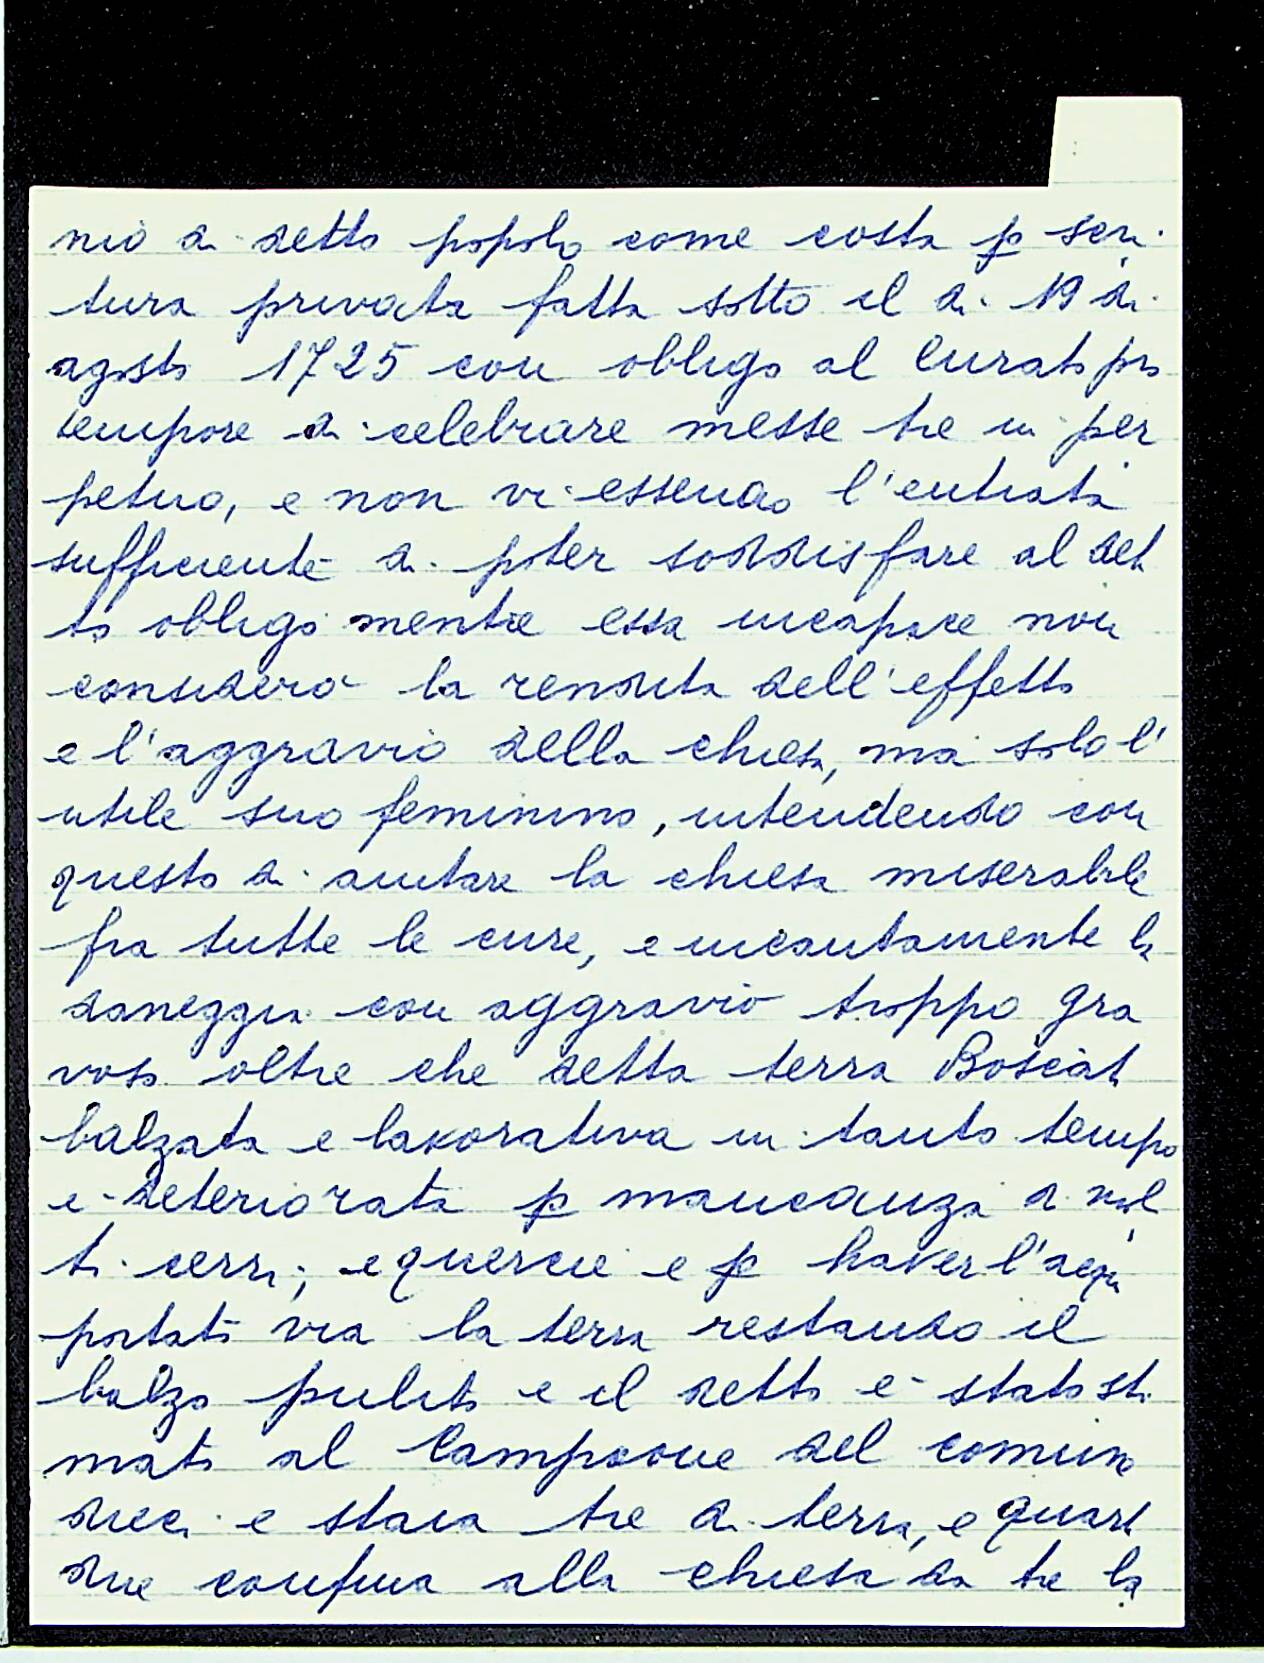 nio di detto popolo come costa p scri
tura privata fatta sotto il di 19 di
agosto 1725 con obligo al Curato pro
tempore di celebrare messe tre in per
petuo, e non vi essendo l'entrata
sufficiente di poter soddisfare al det
to obligo mentre essa incapace non
considerò la rendita dell'effetto
e l'aggravio della chiesa, ma solo l'
utile suo feminino, intendendo con
questo di aiutare la chiesa miserabile
fra tutte le cure, e incautamente la
daneggia con aggravio troppo gra
voso oltre che detta terra Boscata
balzata e lavorativa in tanto tempo
è deteriorata p mancanza di mol
ti cerri, e quercie e p haver l'acqua
portato via la terra restando il
balzo pulito e il detto è stato sti
mato al Campione del comune
dieci e staia tre di terra, e quart
due confina alla chiesa da tre la